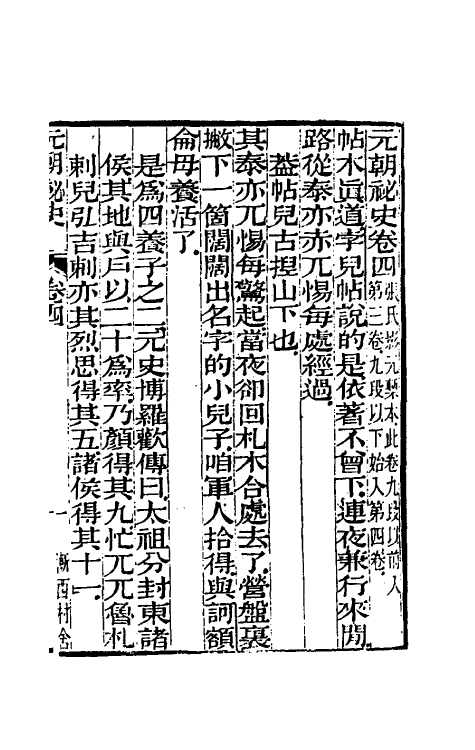 元朝祕史卷四張氏影元槧本此卷九段以前入第三卷九段以下始入第四卷
帖木眞道孛兒帖說的是依著不曾下連夜兼行來間
路從泰亦赤兀惕每處經過
葢帖兒古揑山下也
其泰亦兀惕每驚起當夜卻回札木合處去了營盤裏
撇下一箇闊闊出名字的小兒子咱軍人拾得與訶額
侖母養活了
是爲四養子之二元史博羅歡傳曰太祖分封東諸
侯其地與戶以二十爲率乃顏得其九忙兀兀魯札
剌兒弘吉剌亦其烈思得其五諸侯得其十一
元朝祕史
卷四
一
漸西村舍